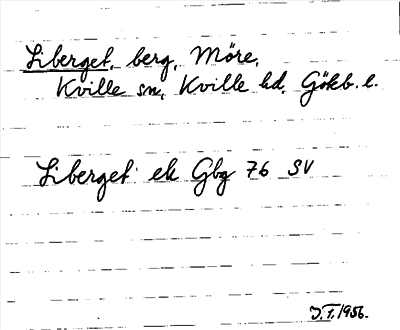 Liberget, berg, Möre,
Kville sn, Kville hd, Göteb. l.
Liberget ek Gbg 76 SV
J.I.1956.